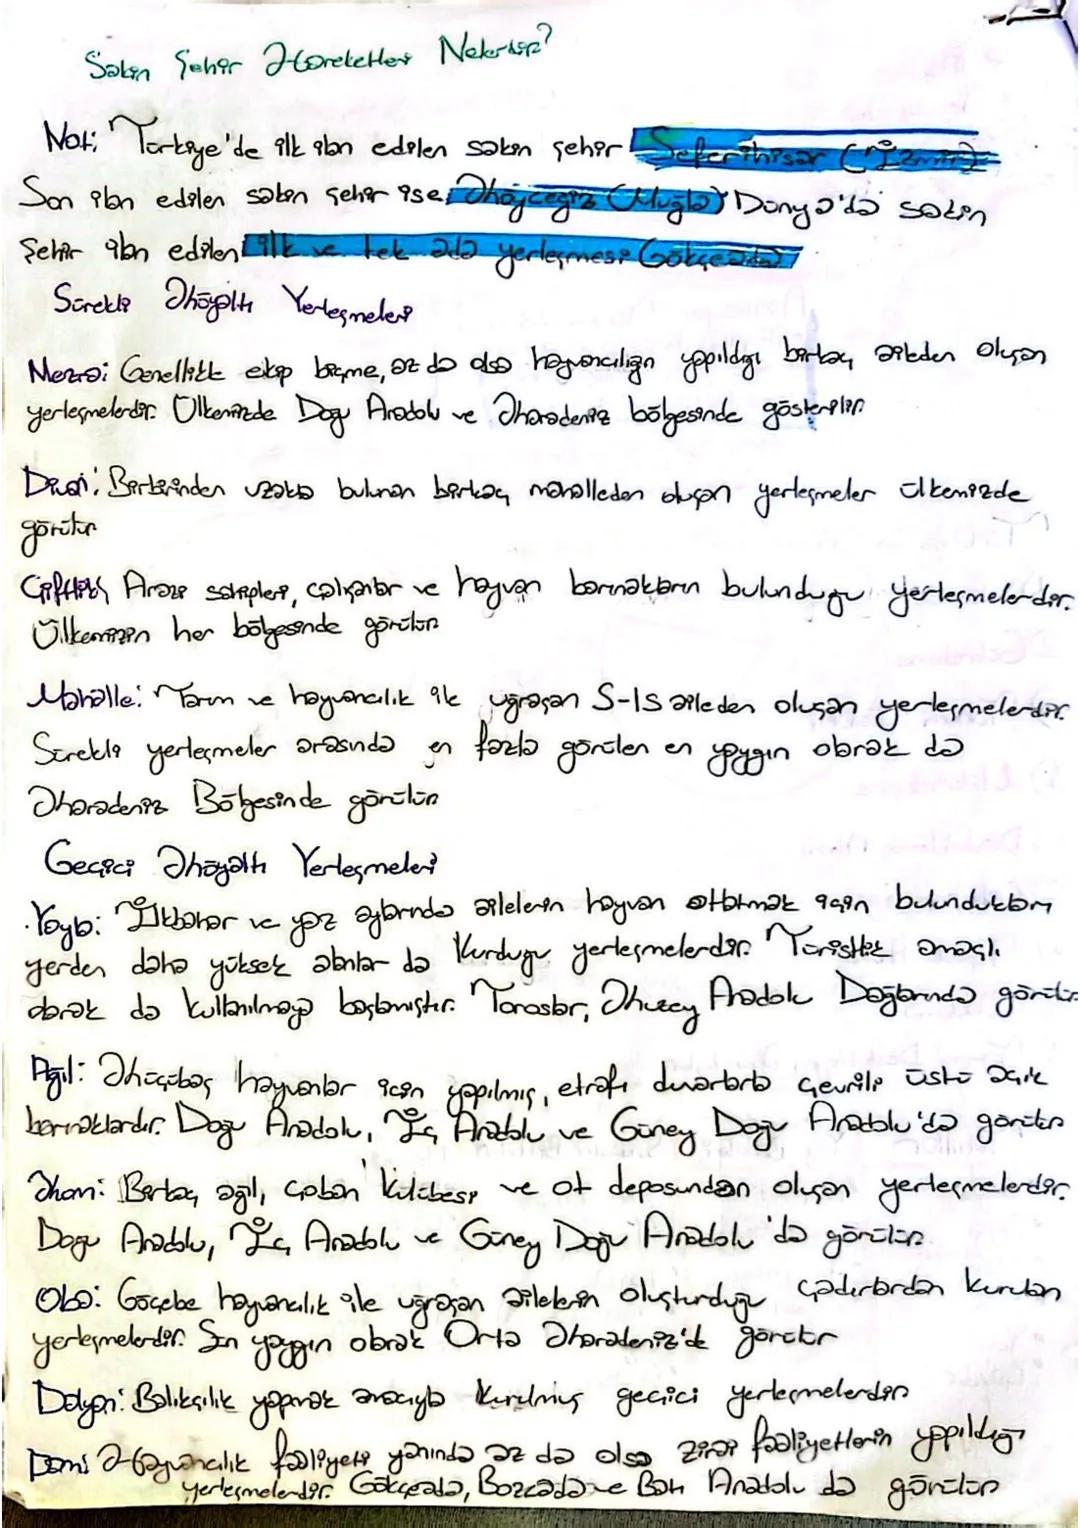 Sakin Şehir Hareketleri Nelerdir?
Not: Türkiye'de ilk ilan edilen sakin şehir Seferihisar (İzmir)
Son ilan edilen sakin şehir ise Köyceğiz (Muğla) Dünya'da sakin
şehir ilan edilen ilk ve tek ada yerleşmesi Gökçeada)
Sürekli Köyaltı Yerleşmeleri
Mezra: Genellikle ekip biçme, az da olsa hayvancılığın yapıldığı birkaç aileden oluşan
yerleşmelerdir. Ülkemizde Doğu Anadolu ve Karadeniz bölgesinde gösterilir
Divan: Birbirinden uzakta bulunan birkaç mahalleden oluşan yerleşmeler ülkemizde
görülür
Çiftlik: Arazi sahipleri, çalışanlar ve hayvan barınakların bulunduğu yerleşmelerdir.
Ülkemizin her bölgesinde görülür
Mahalle: Tarım ve hayvancılık ile uğraşan 5-15 aileden oluşan yerleşmelerdir.
Sürekli yerleşmeler arasında en fazla görülen en yaygın olarak da
Karadeniz Bölgesinde görülür
Geçici Köyaltı Yerleşmeleri
Yayla: İlkbahar ve yaz aylarında ailelerin hayvan otlatmak için bulundukları
yerden daha yüksek alanlar da kurduğu yerleşmelerdir. Turistlik amaçlı
olarak da kullanılmaya başlamıştır. Toroslar, Kuzey Anadolu Dağlarında görülür
Ağıl: Küçükbaş hayvanlar için yapılmış, etrafı duvarlarla çevrili üstü açık
barınaklardır. Doğu Anadolu, İç Anadolu ve Güney Doğu Anadolu'da görülür
Kom: Birkaç ağıl, çoban kulübesi ve ot deposundan oluşan yerleşmelerdir.
Doğu Anadolu, İç Anadolu ve Güney Doğu Anadolu'da görülür.
Oba: Göçebe hayvancılık ile uğraşan ailelerin oluşturduğu çadırlardan kurulan
yerleşmelerdir. En yaygın olarak Orta Karadeniz'de görülür
Dalyan: Balıkçılık yapmak amacıyla kurulmuş geçici yerleşmelerdir
Dam: Hayvancılık faaliyeti yanında az da olsa zirai faaliyetlerin yapıldığı
yerleşmelerdir. Gökçeada, Bozcada ve Batı Anadolu da görülür